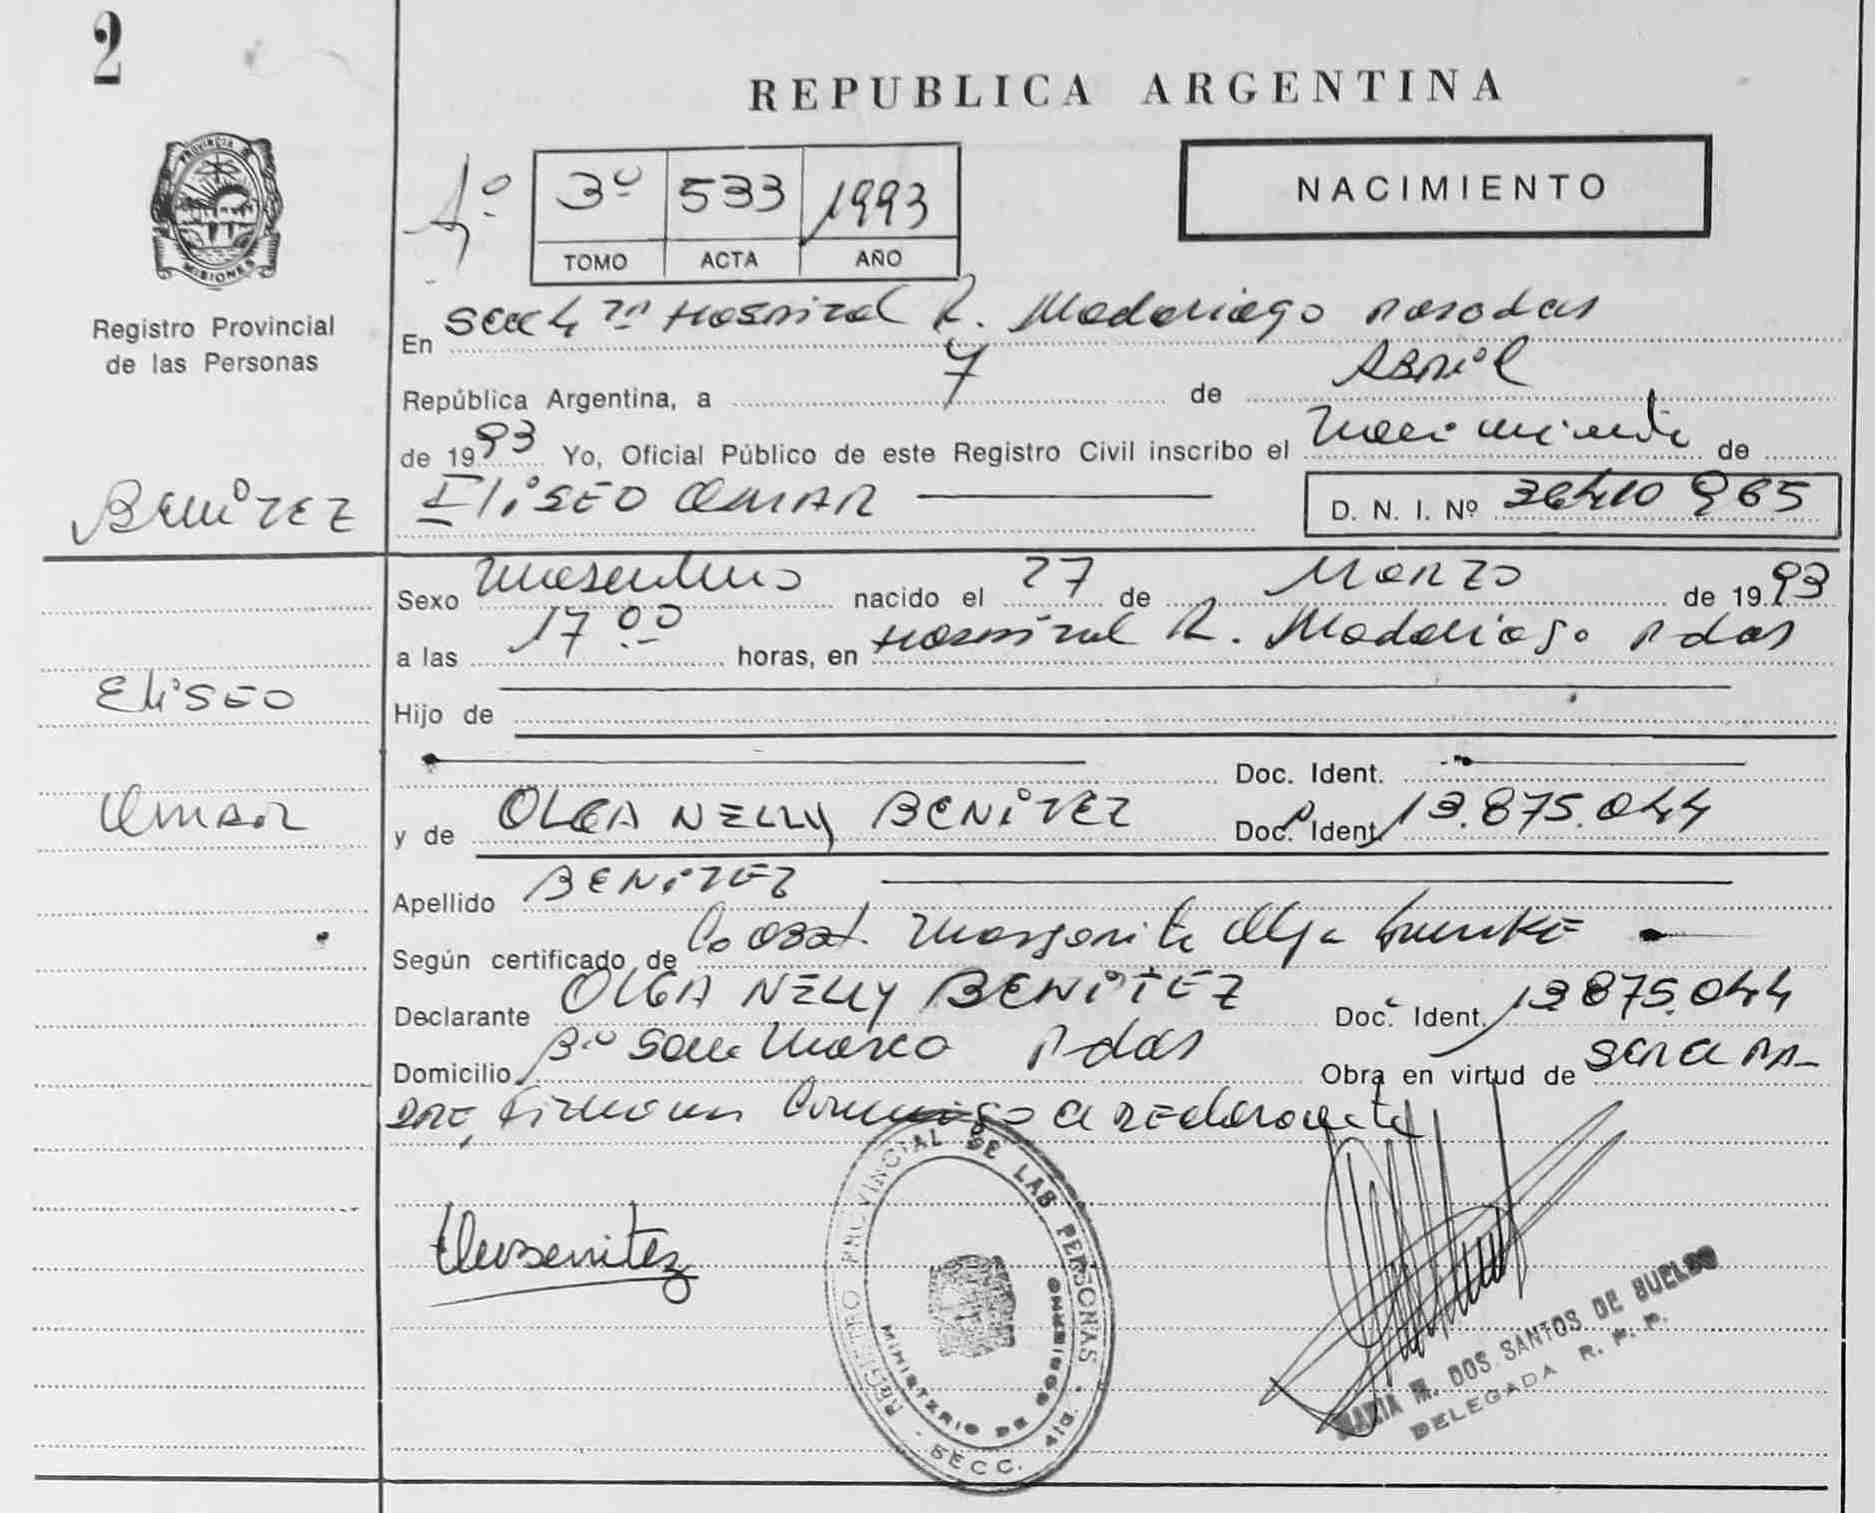 2
REPUBLICA ARGENTINA
PROVINCIA DE MISIONES
Registro Provincial
de las Personas
3º 533 1993
TOMO ACTA AÑO
NACIMIENTO
En Secc 4ta Hospital R. Madariaga Posadas
República Argentina, a 7 de Abril
de 1993 Yo, Oficial Público de este Registro Civil inscribo el Nacimiento de
BENITEZ
ELISEO OMAR
D. N. I. Nº
Sexo Masculino nacido el 27 de Marzo de 1993
a las 17 00 horas, en Hospital R. Madariaga Pdas
ELISEO
Hijo de
Doc. Ident.
OMAR
y de OLGA NELLY BENITEZ Doc. Ident. 13.875.044
Apellido BENITEZ
Según certificado de Obst. Margarita Olga
Declarante OLGA NELLY BENITEZ Doc. Ident. 13875.044
Domicilio Bº San Marco Pdas Obra en virtud de ser la ma-
dre, firma Conmigo la declarante
Benitez
REGISTRO PROVINCIAL DE LAS PERSONAS
MINISTERIO DE GOBIERNO
SECC. 4ta.
MARIA M. DOS SANTOS DE BUELDO
DELEGADA R. P. P.